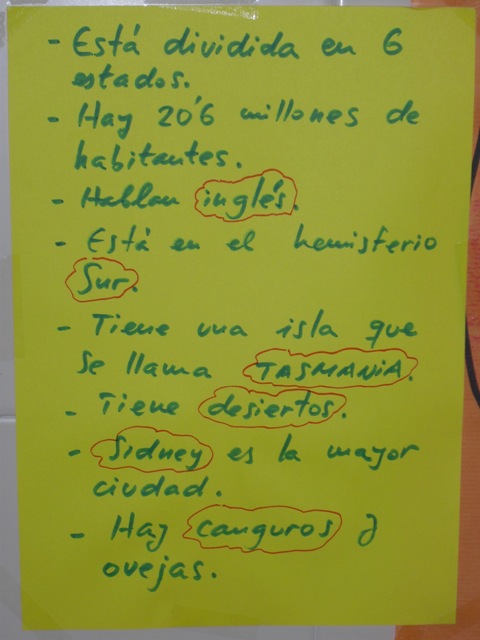 - Está dividida en 6
estados.
- Hay 20'6 millones de
habitantes.
- Hablan inglés.
- Está en el hemisferio
Sur.
- Tiene una isla que
se llama TASMANIA.
- Tiene desiertos.
- Sidney es la mayor
ciudad.
- Hay canguros y
ovejas.